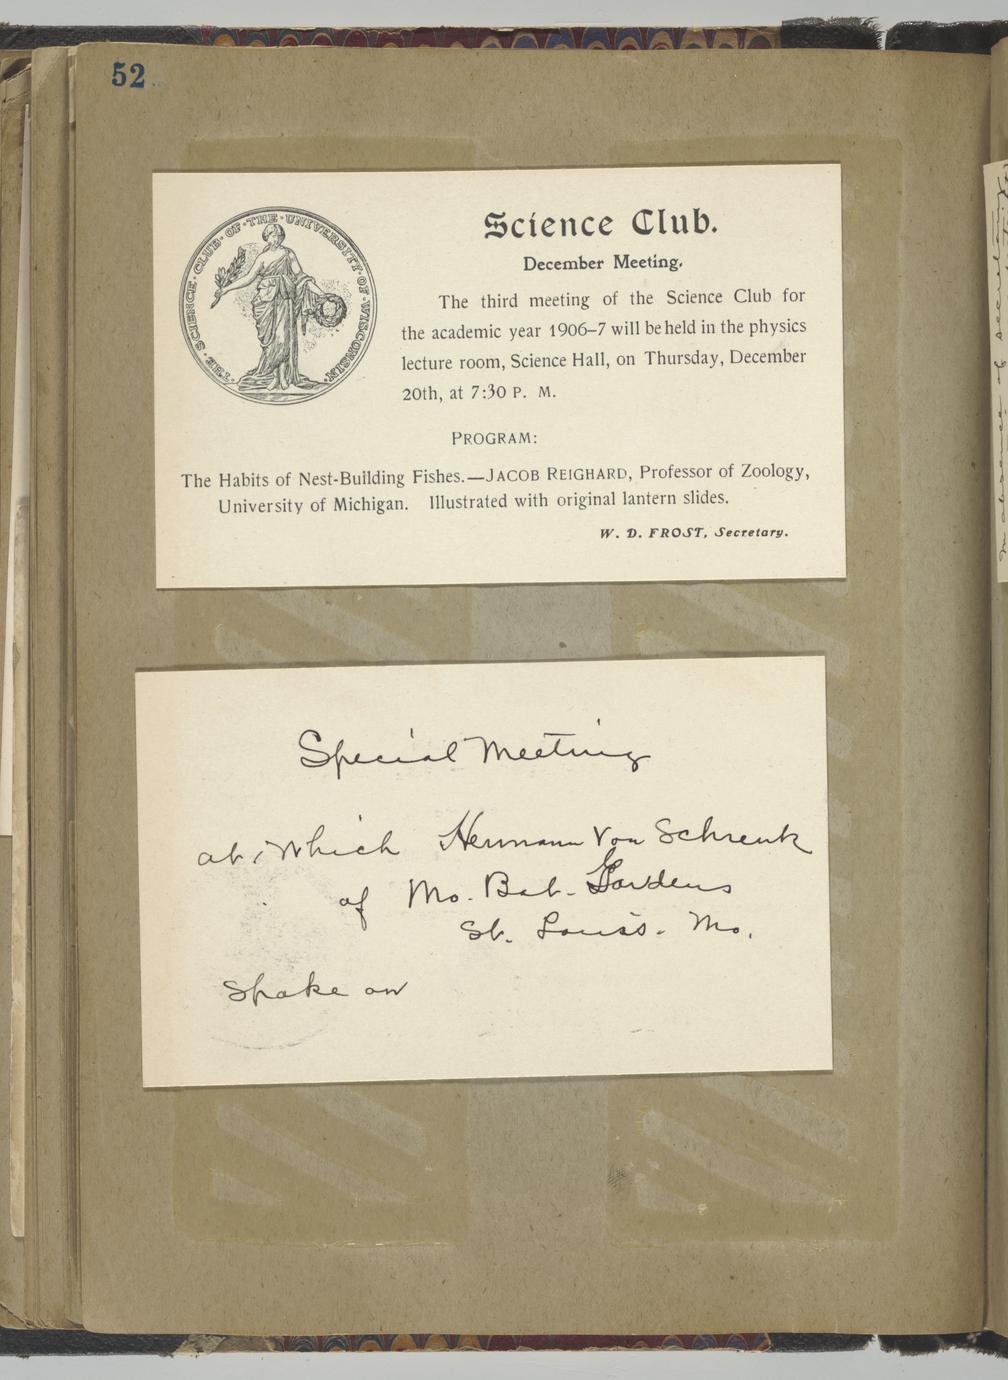 52
THE · SCIENCE · CLUB · OF · THE · UNIVERSITY · OF · WISCONSIN ·
Science Club.
December Meeting.
The third meeting of the Science Club for
the academic year 1906–7 will be held in the physics
lecture room, Science Hall, on Thursday, December
20th, at 7:30 P. M.
PROGRAM:
The Habits of Nest-Building Fishes.—JACOB REIGHARD, Professor of Zoology,
University of Michigan. Illustrated with original lantern slides.
W. D. FROST, Secretary.
Special Meeting
at which Hermann Von Schrenk
of Mo. Bot. Gardens
St. Louis. Mo.
Spoke on